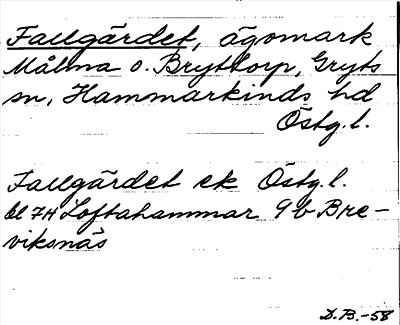 Fallgärdet, ägomark
Målma o. Bryttorp, Gryts
sn, Hammarkinds hd
Östg.l.
Fallgärdet ek Östg.l.
bl 7H Loftahammar 9 b Bre-
viksnäs
D.B.-58